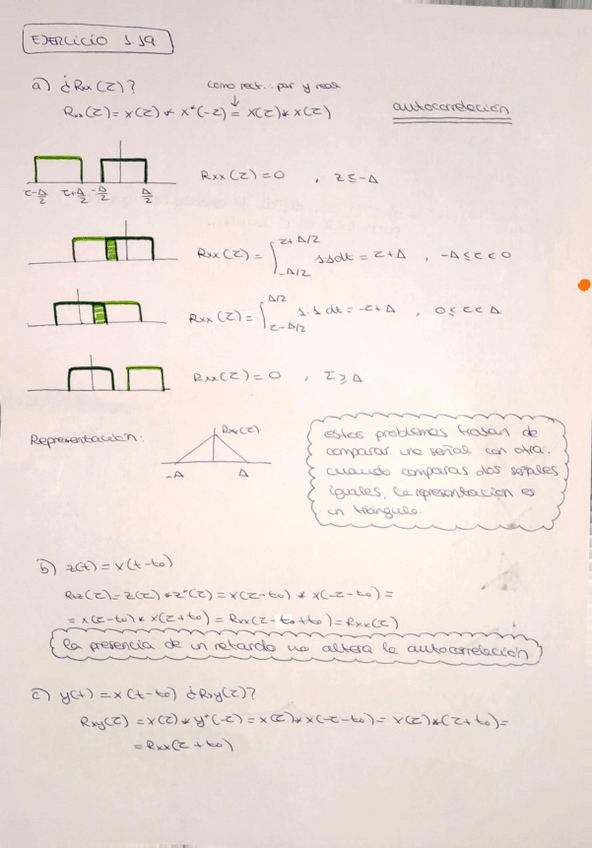 EJERCICIO 1.19
a) ¿Rxx(τ)?
como rect.: par y real
Rxx(τ) = x(τ) * x*(-τ) = x(τ) * x(τ)
autocorrelación
τ-Δ/2 τ+Δ/2 -Δ/2 Δ/2
Rxx(τ) = 0 , τ ≤ -Δ
Rxx(τ) = ∫_{-Δ/2}^{τ+Δ/2} 1·1 dt = τ+Δ , -Δ ≤ τ < 0
Rxx(τ) = ∫_{τ-Δ/2}^{Δ/2} 1·1 dt = -τ+Δ , 0 ≤ τ < Δ
Rxx(τ) = 0 , τ ≥ Δ
Representación:
Rxx(τ)
-Δ Δ
estos problemas tratan de
comparar una señal con otra.
cuando comparas dos señales
iguales, la representación es
un triángulo.
b) z(t) = x(t-to)
Rzz(τ) = z(τ) * z*(τ) = x(τ-to) * x(-τ-to) =
= x(τ-to) * x(τ+to) = Rxx(τ-to+to) = Rxx(τ)
la presencia de un retardo no altera la autocorrelación
c) y(t) = x(t-to) ¿Rxy(τ)?
Rxy(τ) = x(τ) * y*(-τ) = x(τ) * x(-τ-to) = x(τ) * (τ+to) =
= Rxx(τ+to)